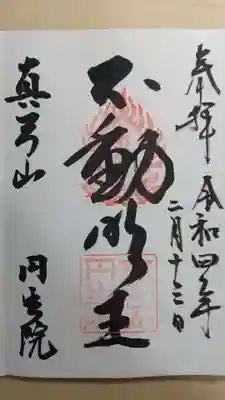 奉拝
令和四年
二月十三日
不動明王
真弓山
円生院